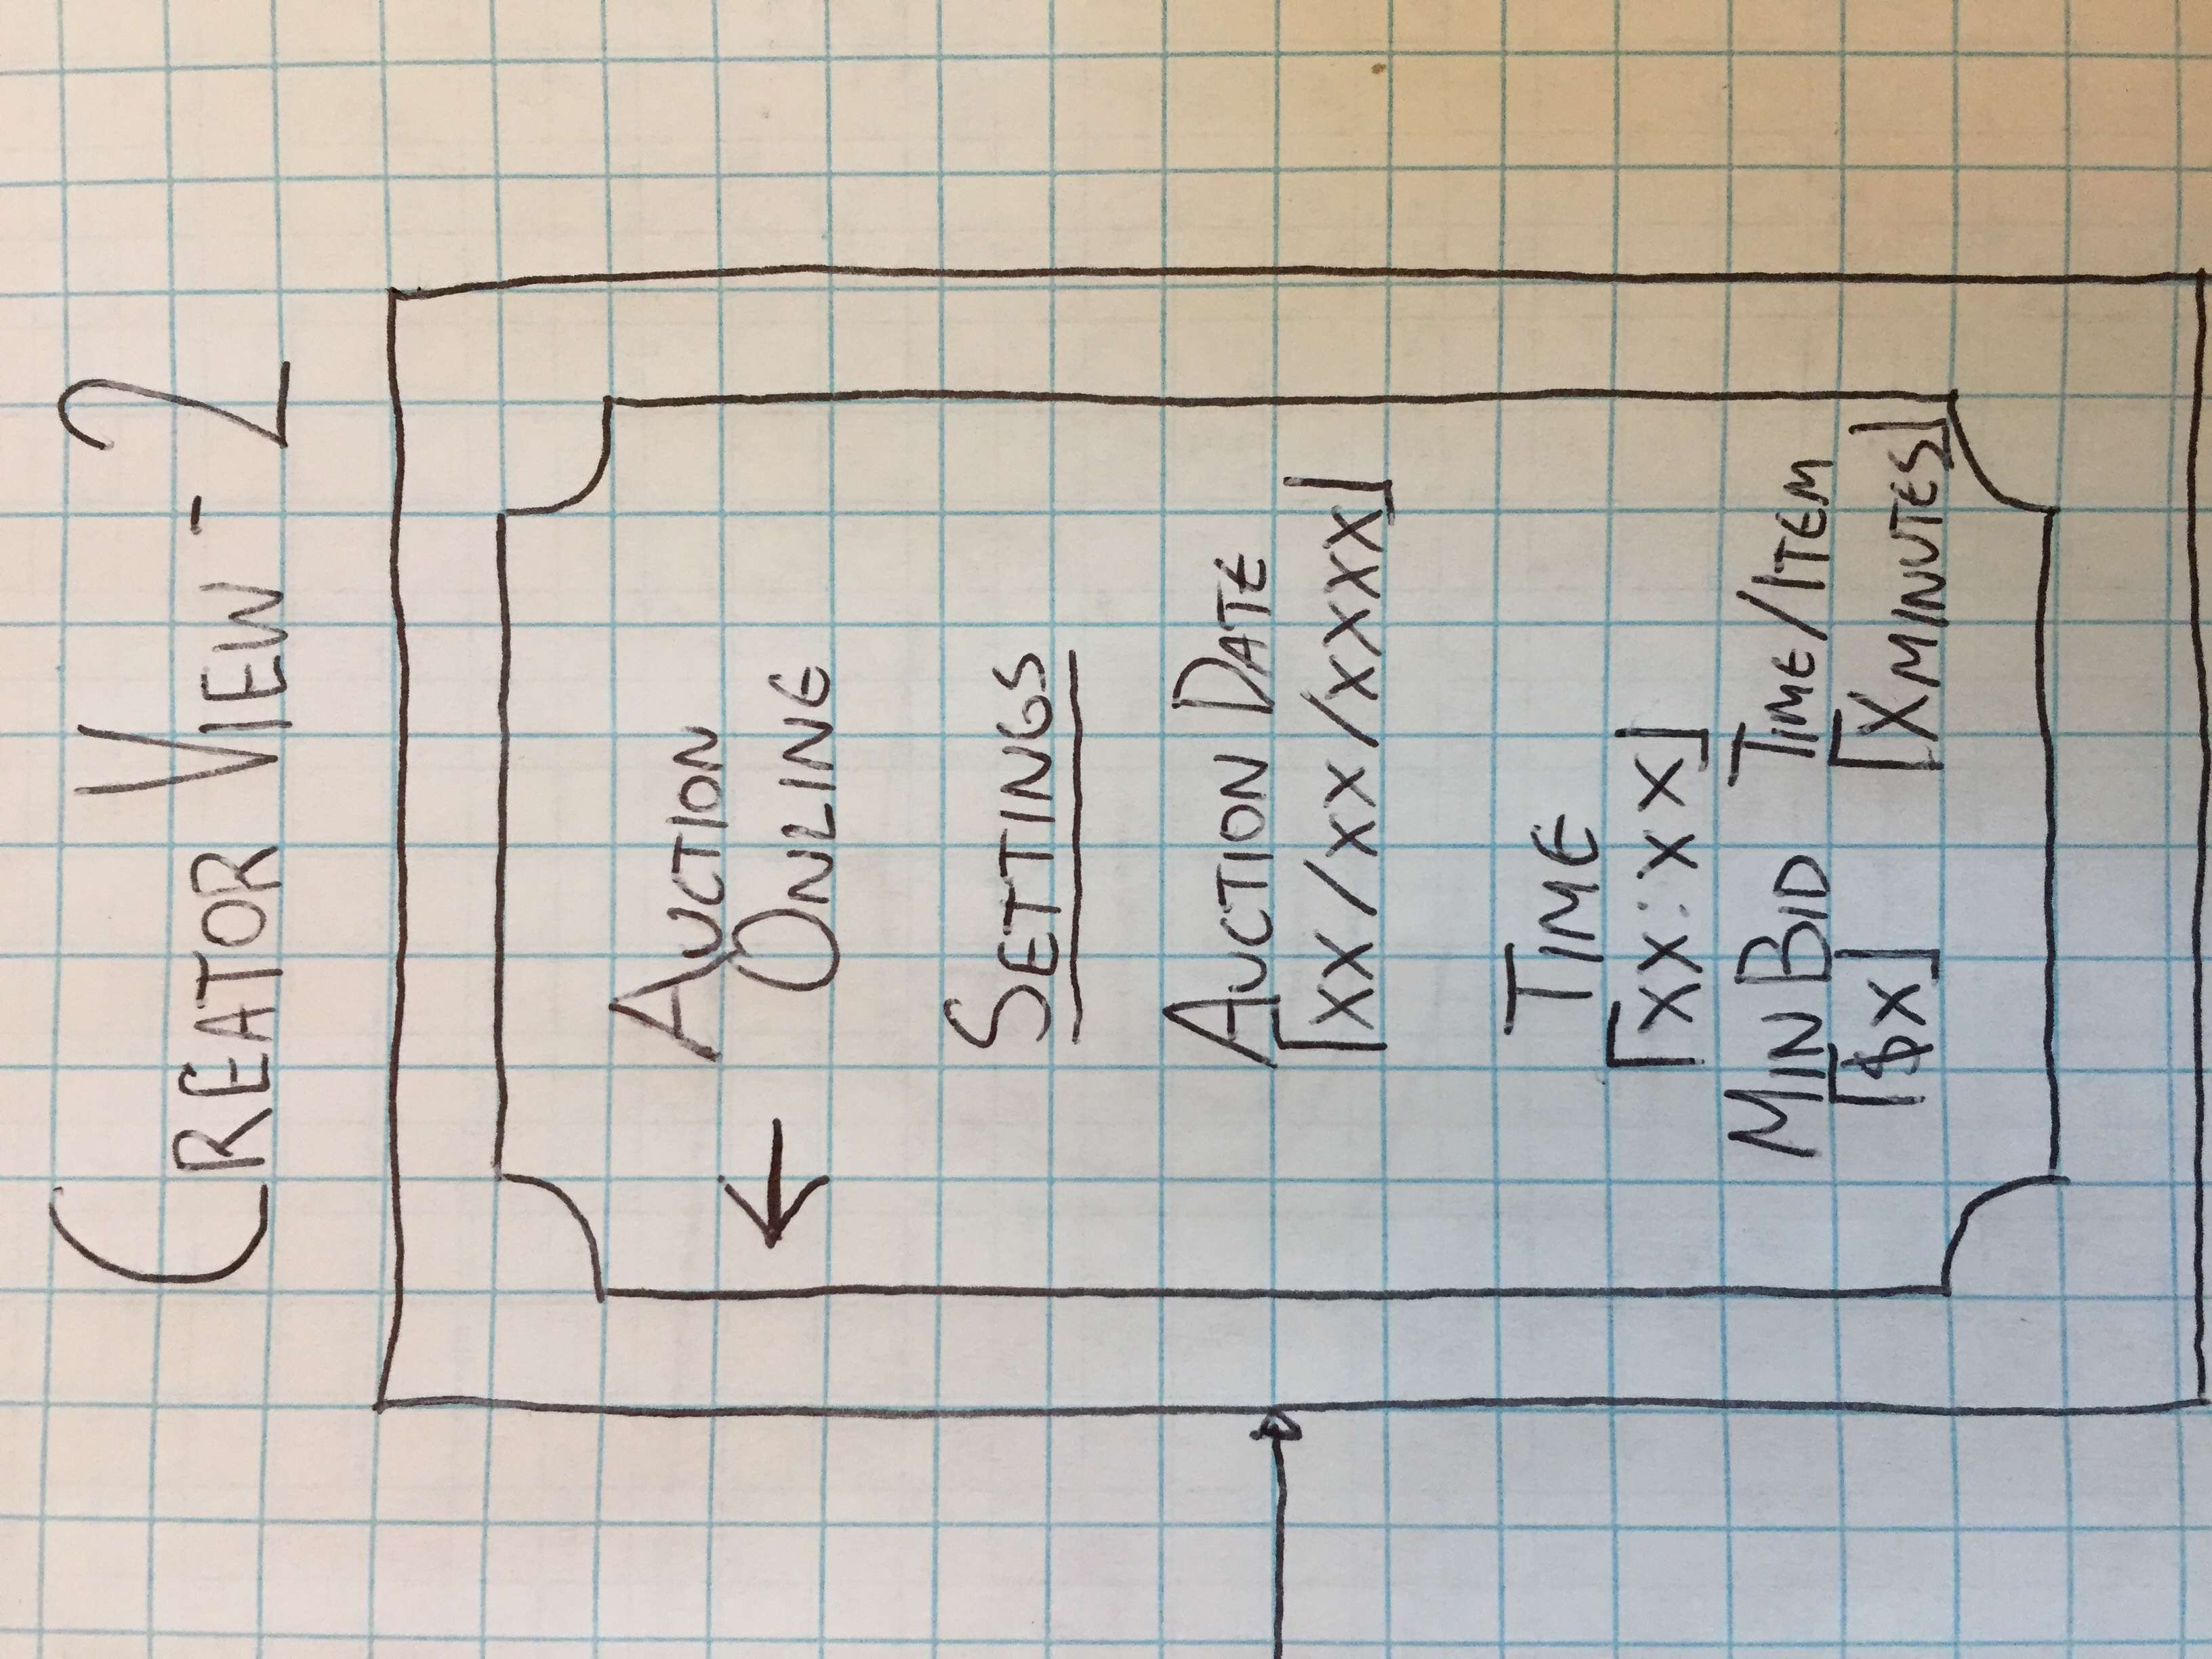 CREATOR VIEW - 2
AUCTION
ONLINE
SETTINGS
AUCTION DATE
⌈XX/XX/XXXX⌋
TIME
⌈XX:XX⌋
MIN BID TIME/ITEM
⌈$X⌋ ⌈X MINUTES⌋